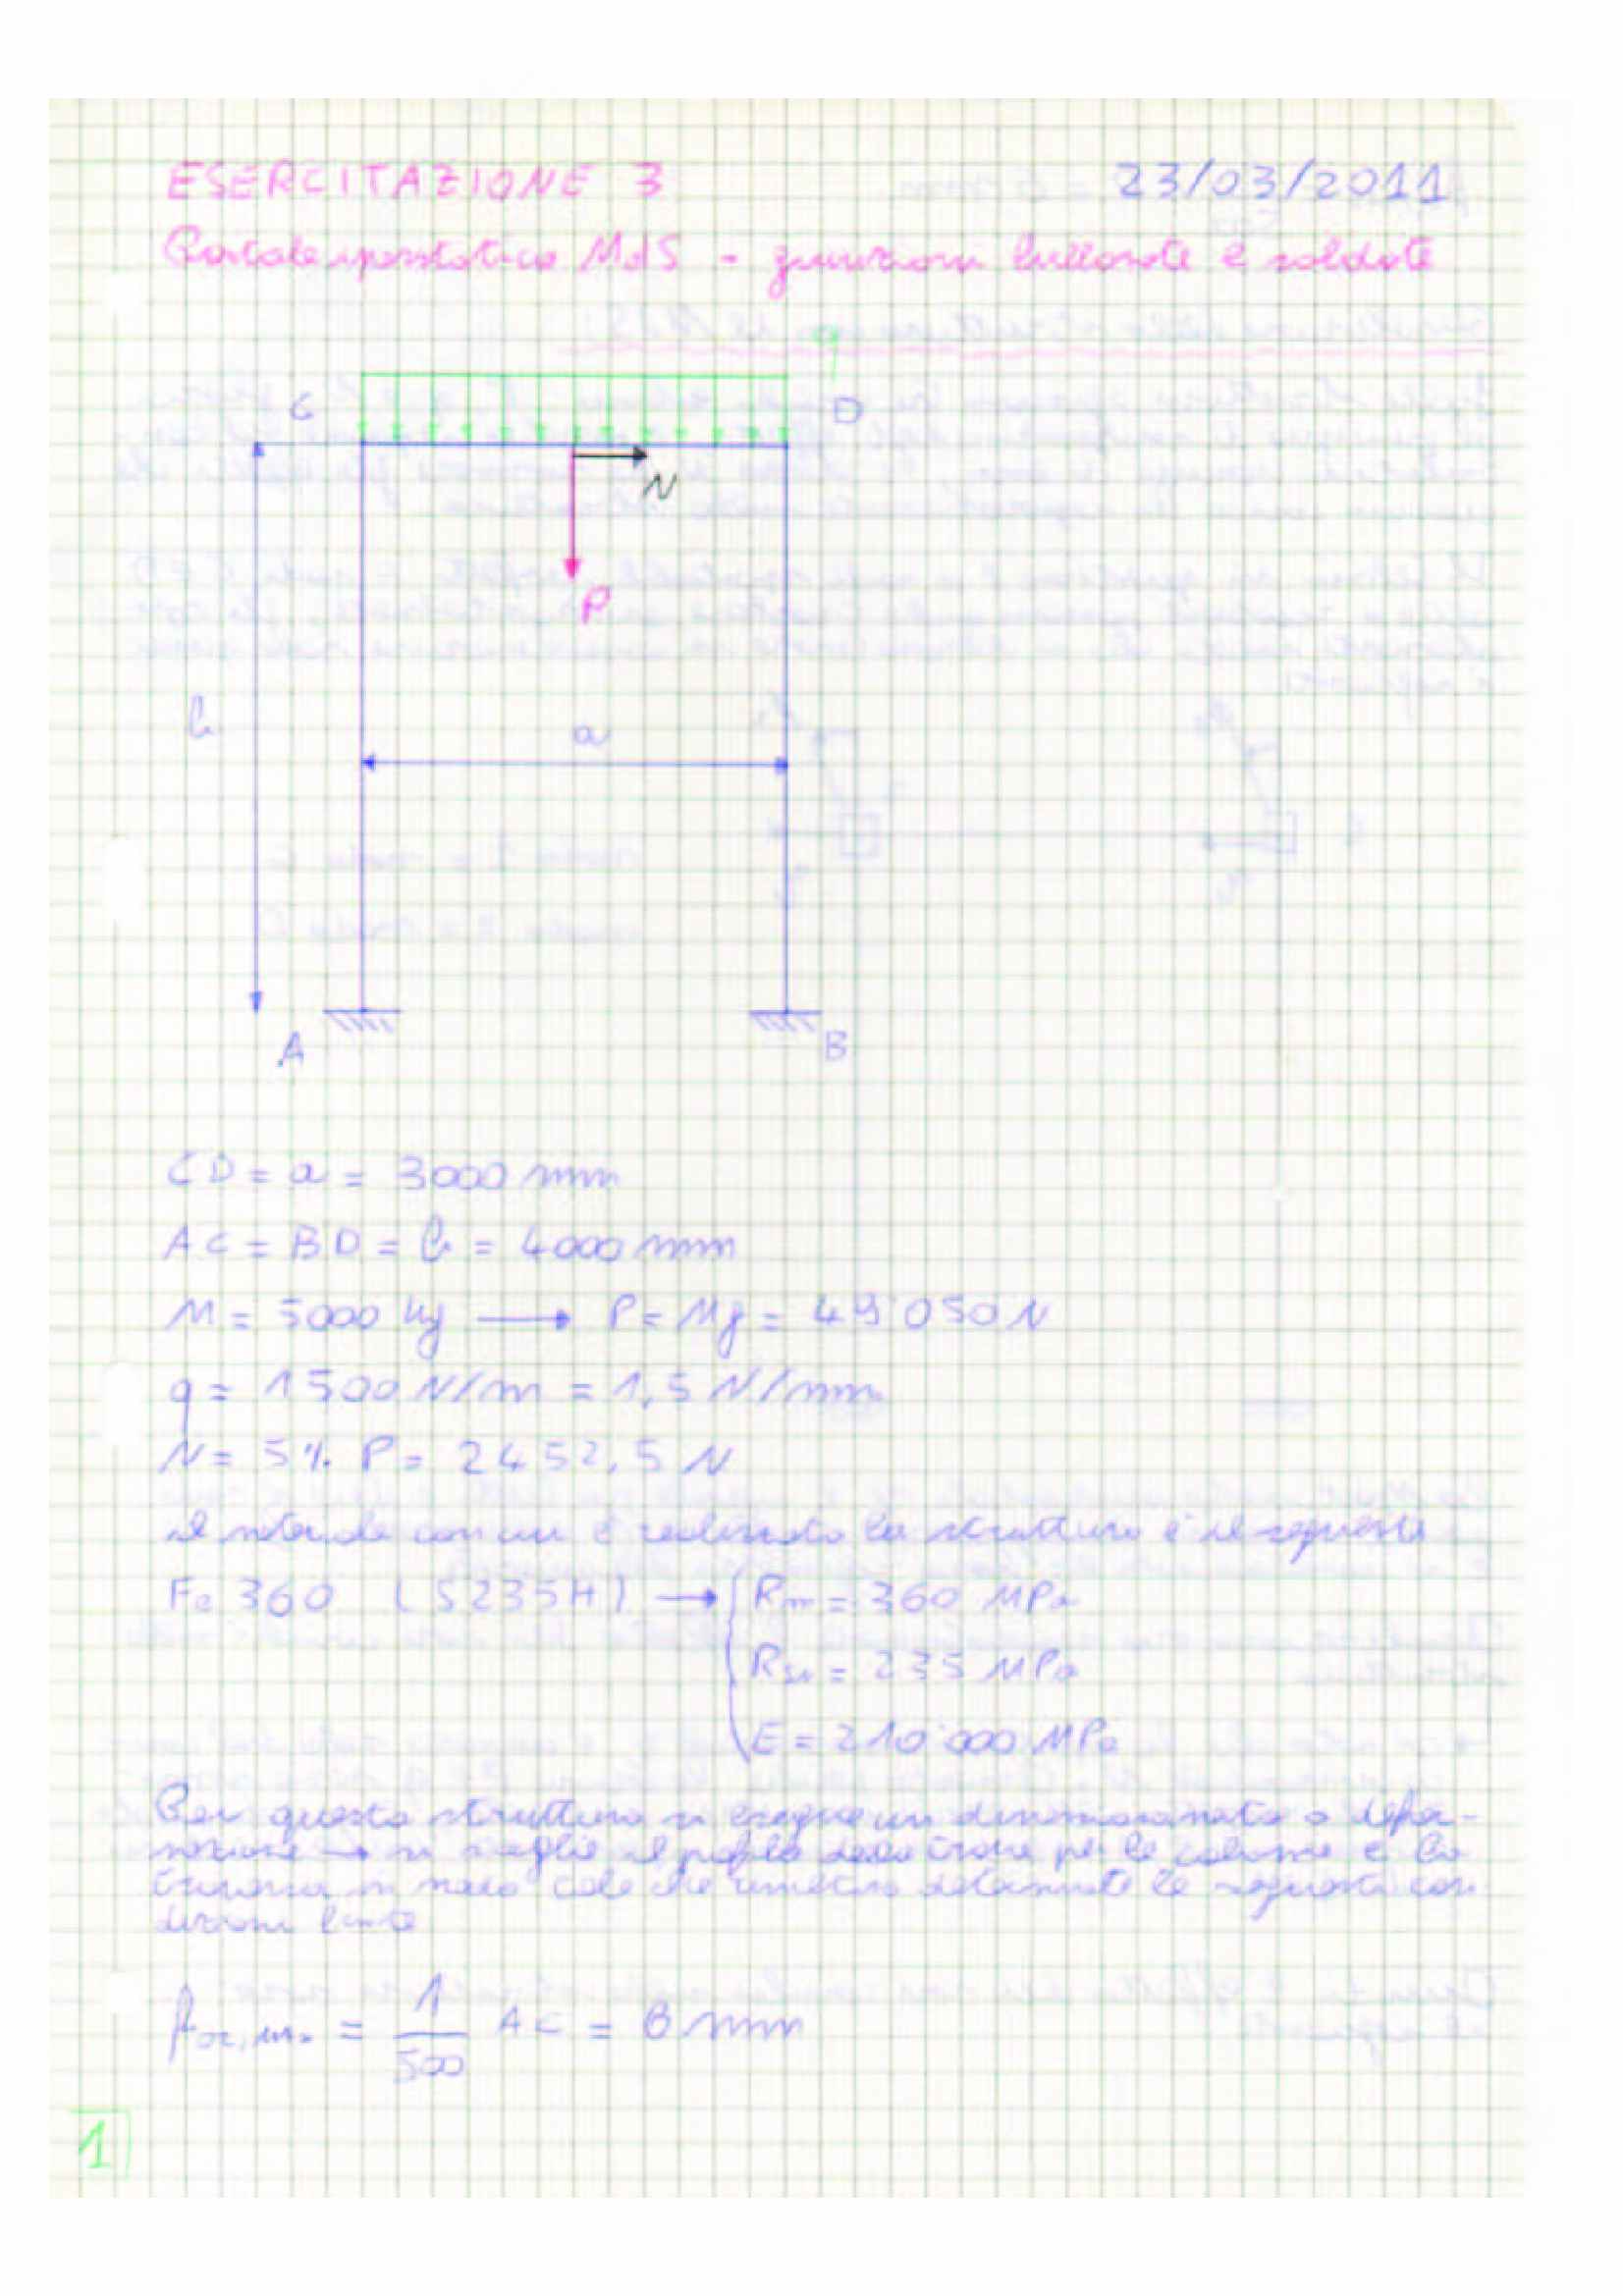 ESERCITAZIONE 3 23/03/2011
Portale iperstatico MdS - giunzioni bullonate e saldate
q
C D
N
P
b
a
A B
CD = a = 3000 mm
AC = BD = b = 4000 mm
M = 5000 kg → P = Mg = 49'050 N
q = 1500 N/m = 1,5 N/mm
N = 5% P = 2452,5 N
il materiale con cui è realizzata la struttura è il seguente
Fe 360 (S235H) → { Rm = 360 MPa
Rsn = 235 MPa
E = 210'000 MPa
Per questa struttura si esegue un dimensionamento a defor-
mazione → si sceglie il profilo della trave per le colonne e la
traversa in modo tale che vengano le seguenti con
dizioni limite
= 1/500 AC = 8 mm
1